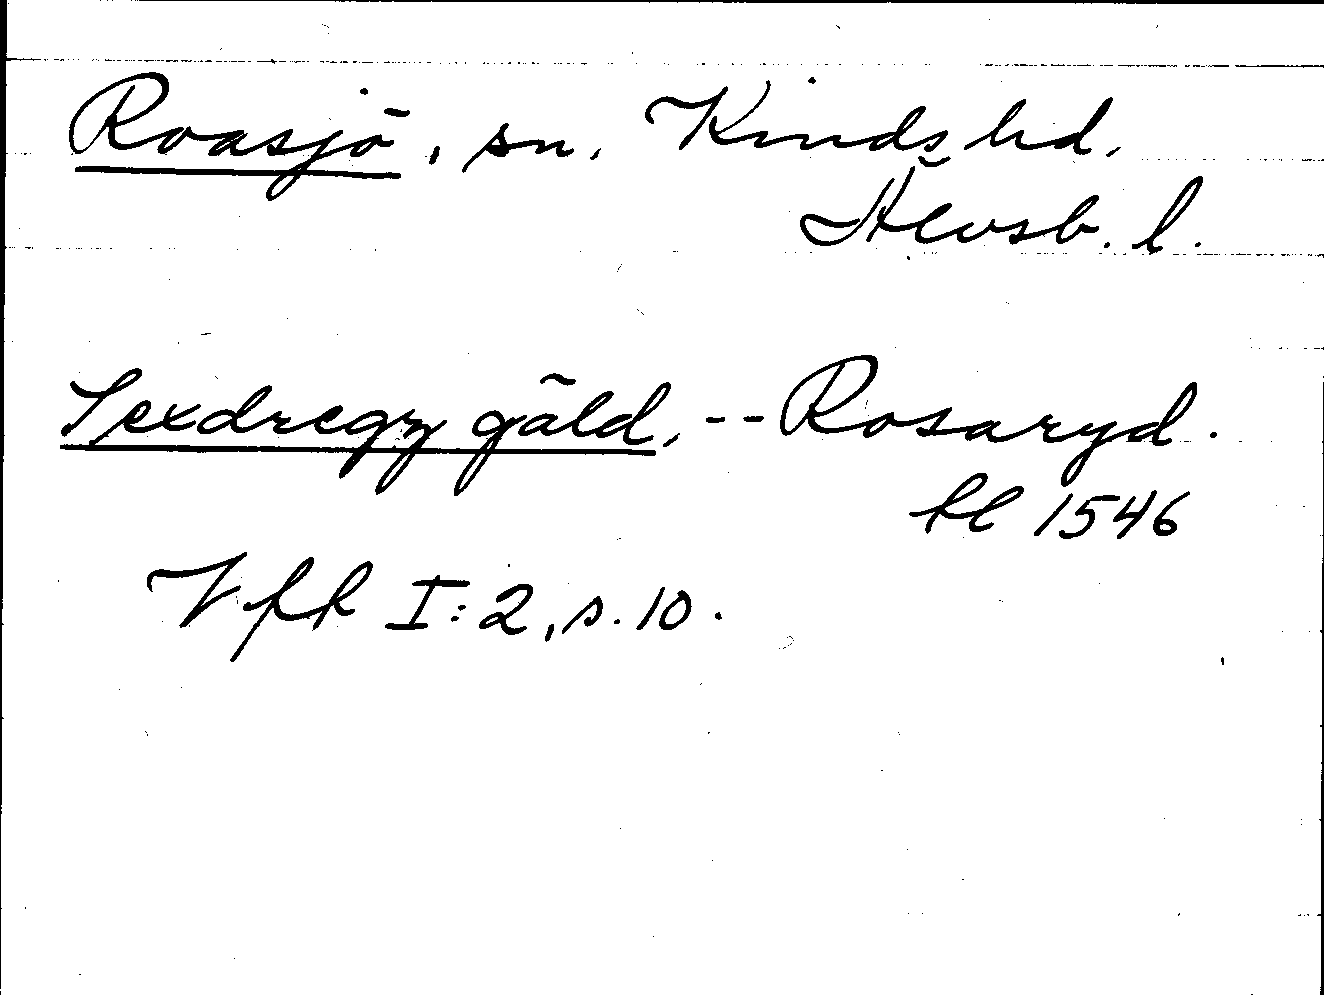 Roasjö, sn, Kinds hd,
Älvsb. l.
Sexdregz gäld, -- Rosaryd.
kl 1546
Vfk I:2, s. 10.